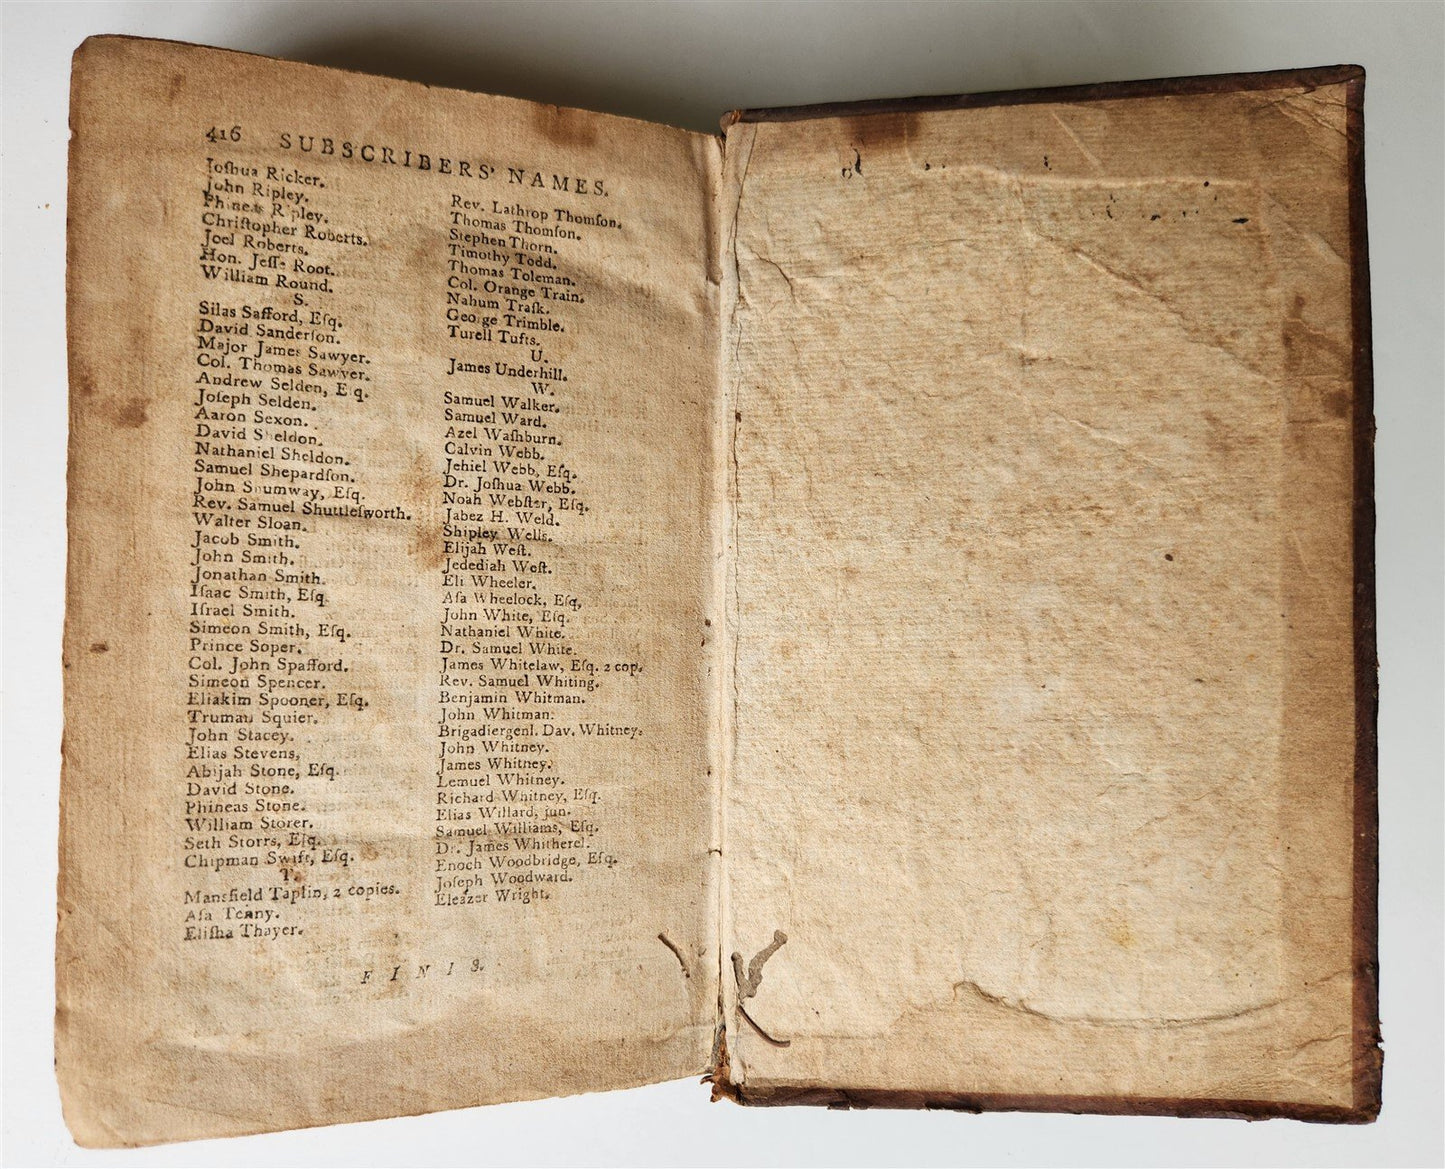 416 SUBSCRIBERS' NAMES.
Joſhua Ricker.
John Ripley.
Phineas Ripley.
Chriſtopher Roberts.
Joel Roberts.
Hon. Jeſſe Root.
William Round.
S.
Silas Safford, Eſq.
David Sanderſon.
Major James Sawyer.
Col. Thomas Sawyer.
Andrew Selden, Eſq.
Joſeph Selden.
Aaron Sexon.
David Sheldon.
Nathaniel Sheldon.
Samuel Shepardſon.
John Shumway, Eſq.
Rev. Samuel Shuttleſworth.
Walter Sloan.
Jacob Smith.
John Smith.
Jonathan Smith.
Iſaac Smith, Eſq.
Iſrael Smith.
Simeon Smith, Eſq.
Prince Soper.
Col. John Spafford.
Simeon Spencer.
Eliakim Spooner, Eſq.
Truman Squier.
John Stacey.
Elias Stevens,
Abijah Stone, Eſq.
David Stone.
Phineas Stone.
William Storer.
Seth Storrs, Eſq.
Chipman Swift, Eſq.
T.
Mansfield Taplin, 2 copies.
Aſa Tenny.
Eliſha Thayer.
Rev. Lathrop Thomſon.
Thomas Thomſon.
Stephen Thorn.
Timothy Todd.
Thomas Toleman.
Col. Orange Train.
Nahum Traſk.
George Trimble.
Turell Tufts.
U.
James Underhill.
W.
Samuel Walker.
Samuel Ward.
Azel Waſhburn.
Calvin Webb.
Jehiel Webb, Eſq.
Dr. Joſhua Webb.
Noah Webſter, Eſq.
Jabez H. Weld.
Shipley Wells.
Elijah Weſt.
Jedediah Weſt.
Eli Wheeler.
Aſa Wheelock, Eſq,
John White, Eſq.
Nathaniel White.
Dr. Samuel White.
James Whitelaw, Eſq. 2 cop.
Rev. Samuel Whiting.
Benjamin Whitman.
John Whitman.
Brigadiergenl. Dav. Whitney.
John Whitney.
James Whitney.
Lemuel Whitney.
Richard Whitney, Eſq.
Elias Willard, jun.
Samuel Williams, Eſq.
Dr. James Whitherel.
Enoch Woodbridge, Eſq.
Joſeph Woodward.
Eleazer Wright.
F I N I S.